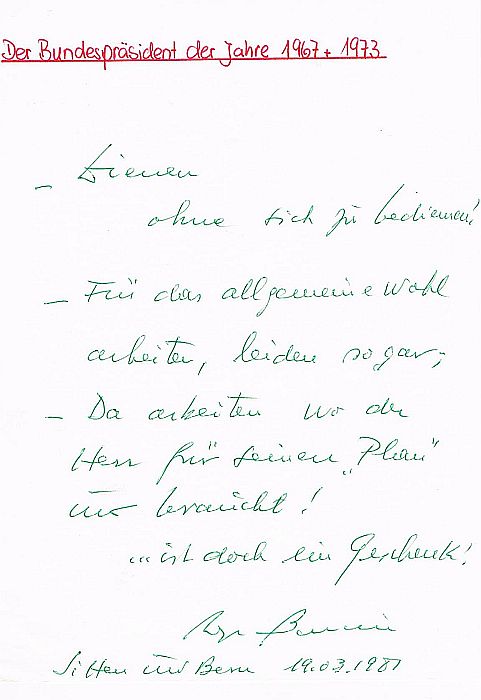 Der Bundespräsident der Jahre 1967 + 1973
- Dienen
ohne sich zu bedienen!
- Für das allgemeine Wohl
arbeiten, leiden sogar;
- Da arbeiten wo der
Herr für seinen „Plan"
uns braucht!
... ist doch ein Geschenk!
Roger Bonvin
Sitten und Bern 19.03.1981